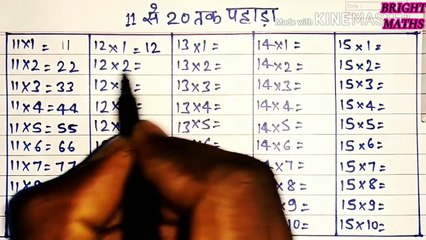 11 से 20 तक पहाड़ा
Made with KINEMASTER
BRIGHT MATHS
11×1 = 11 12×1 = 12 13×1 = 14×1 = 15×1 =
11×2 = 22 12×2 = 13×2 = 14×2 = 15×2 =
11×3 = 33 12× = 13×3 = 14×3 = 15×3 =
11×4 = 44 12×4 = 13×4 = 14×4 = 15×4 =
11×5 = 55 12× = 13×5 = 14×5 = 15×5 =
11×6 = 66 12 14×6 = 15×6 =
11×7 = 77 ×7 = 15×7 =
11× ×8 = 15×8 =
11 ×9 = 15×9 =
10 = 15×10 =